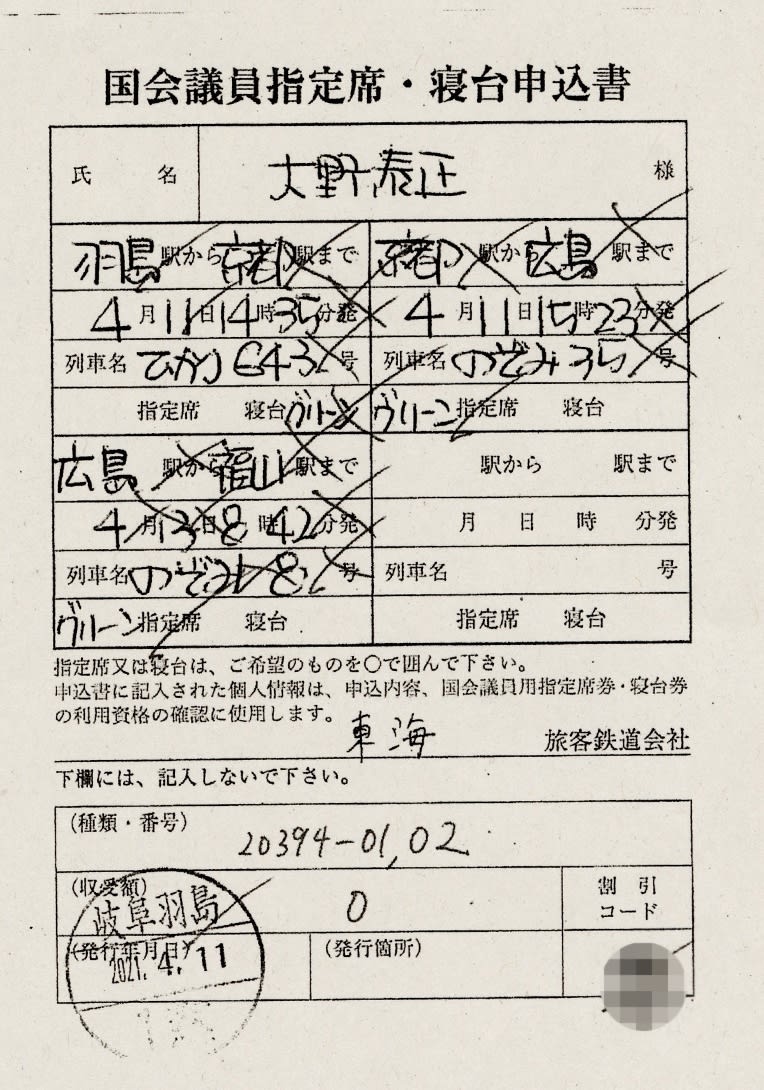 国会議員指定席・寝台申込書
氏 名 大野泰正 様
羽島 駅から 京都 駅まで
4月11日14時35分発
列車名 ひかり643号
指定席 寝台 グリーン
京都 駅から 広島 駅まで
4月11日15時23分発
列車名 のぞみ35号
グリーン 指定席 寝台
広島 駅から 福山 駅まで
4月13日8時42分発
列車名 のぞみ18号
グリーン 指定席 寝台
駅から 駅まで
月 日 時 分発
列車名 号
指定席 寝台
指定席又は寝台は、ご希望のものを○で囲んで下さい。
申込書に記入された個人情報は、申込内容、国会議員用指定席券・寝台券
の利用資格の確認に使用します。
東海 旅客鉄道会社
下欄には、記入しないで下さい。
(種類・番号)
20394-01,02
(収受額)
0
割 引
コード
岐阜羽島
(発行年月日)
2021.4.11
(発行箇所)